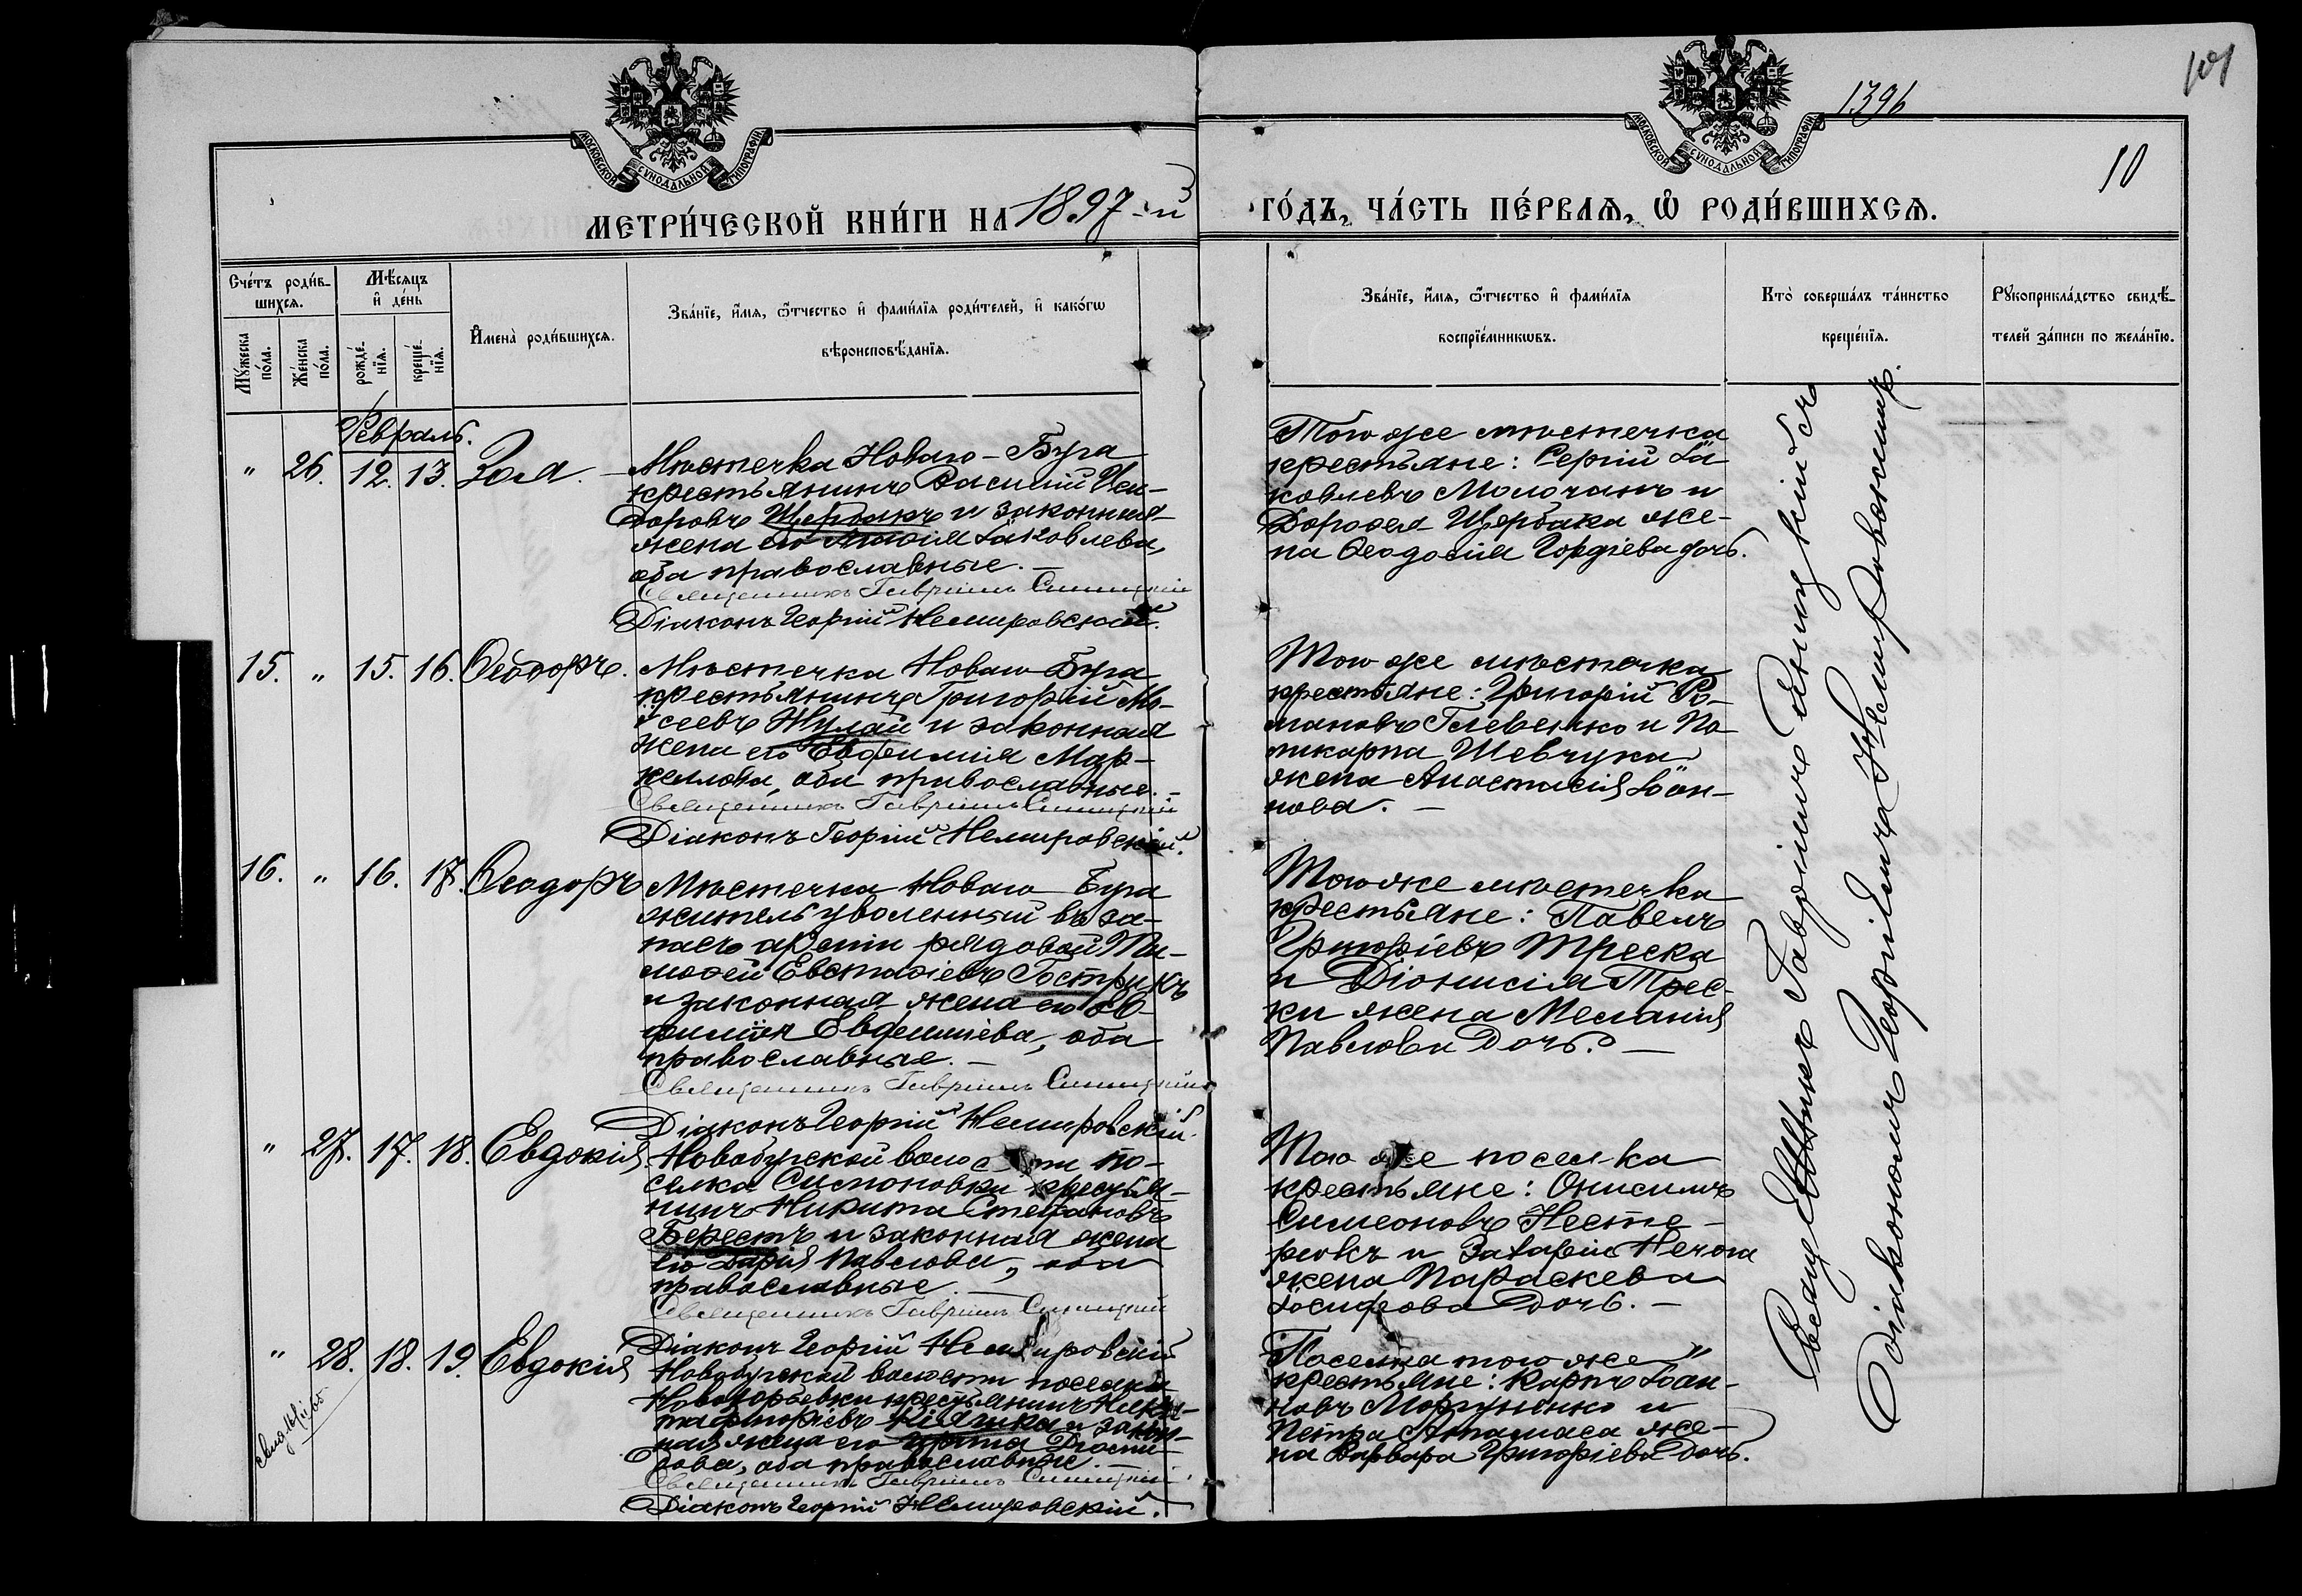 101
1396
10
МОСКОВСКОЙ СУНОДАЛЬНОЙ ТИПОГРАФІИ
МОСКОВСКОЙ СУНОДАЛЬНОЙ ТИПОГРАФІИ
МЕТРИ́ЧЕСКОЙ КНИ́ГИ НА 1897-й
ГО́ДЪ, ЧА́СТЬ ПЕ́РВАЯ, Ѡ҆ РОДИ́ВШИХСЯ.
Сче́тъ роди́в-
шихся.
Мꙋ́жеска по́ла.
Же́нска по́ла.
Мѣ́сяцъ
и҆ де́нь
рожде́-
нїя.
креще́-
нїя.
И҆мена̀ роди́вшихся.
Зва́нїе, и҆́мя, ѻ҆́тчество и҆ фами́лїя роди́телей, и҆ како́гѡ
вѣроисповѣ́данїя.
Зва́нїе, и҆́мя, ѻ҆́тчество и҆ фами́лїя
воспрїе́мникѡвъ.
Кто̀ соверша́лъ та́инство
креще́нїя.
Рꙋкоприкла́дство свидѣ́-
телей за́писи по жела́нїю.
Февраль.
" 26. 12. 13. Зоя.
Мѣстечка Новаго-Буга
крестьянинъ Василій Иси-
доровъ Щербакъ и законная
жена его Іаковлева,
оба православные. —
Священникъ Гавріилъ Синицкій
Діаконъ Георгій Немировскій.
Того же мѣстечка
крестьяне: Сергій Іа-
ковлевъ Молочанъ и
Дорофея Щербака же-
на Ѳеодосія Гордіева дочь.
15. " 15. 16. Ѳеодоръ.
Мѣстечка Новаго Буга
крестьянинъ Григорій Мо-
ѵсеевъ Жулай и законная
жена его Евфимія Мар-
келлова, оба православные. —
Священникъ Гавріилъ Синицкій
Діаконъ Георгій Немировскій.
Того же мѣстечка
крестьяне: Григорій Ро-
мановъ Гелевячко и По-
ликарпа Шевчука
жена Анастасія Іоан-
нова. —
16. " 16. 17. Ѳеодоръ
Мѣстечка Новаго Буга
житель уволенный въ за-
пасъ арміи рядовой Ти-
моѳей Евстафіевъ Гострикъ
и законная жена его Ев-
фимія Евфиміева, оба
православные. —
Священникъ Гавріилъ Синицкій
Діаконъ Георгій Немировскій.
Того же мѣстечка
крестьяне: Павелъ
Григоріевъ Треска
и Діонисія Трес-
ки жена Меланія
Павлова дочь. —
" 27. 17. 18. Евдокія.
Новобугской волости по-
селка Симоновки крестья-
нинъ Никита Стефановъ
Берестъ и законная жена
его Дарія Павлова, оба
православные. —
Священникъ Гавріилъ Синицкій
Діаконъ Георгій Немировскій
Того же поселка
крестьяне: Онисимъ
Симеоновъ Несте-
рюкъ и Захарія Нечога
жена Параскева
Іосифова дочь. —
" 28. 18. 19. Евдокія
Новобугской волости поселка
Новоюрьевки крестьянинъ Ники-
та Григоріевъ и закон-
ная жена его Ирина
оба православные. —
Священникъ Гавріилъ Синицкій.
Діаконъ Георгій Немировскій.
Поселка того же
крестьяне: Карпъ Іоан-
новъ Моргуненко и
Петра Атамаса же-
на Варвара Григоріева дочь.
Священникъ Гавріилъ Синицкій съ
Діакономъ Георгіемъ Немировскимъ.